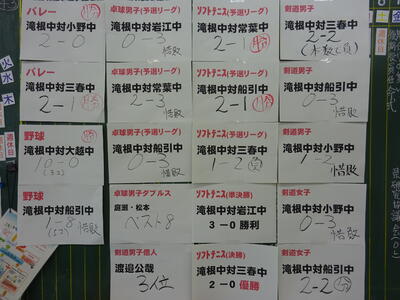 バレー
滝根中対小野中
2-0
バレー
滝根中対三春中
2-1
野球
滝根中対大越中
10-0
(5コ)
野球
滝根中対船引中
1-8
(5コ)
惜敗
卓球男子(予選リーグ)
滝根中対岩江中
0-3
惜敗
卓球男子(予選リーグ)
滝根中対常葉中
2-3
惜敗
卓球男子(予選リーグ)
滝根中対船引中
0-3
惜敗
卓球男子ダブルス
庭瀬・松本
ベスト8
卓球男子個人
渡邉公哉
3位
ソフトテニス(予選リーグ)
滝根中対常葉中
2-1
ソフトテニス(予選リーグ)
滝根中対船引中
2-1
ソフトテニス(予選リーグ)
滝根中対三春中
1-2
ソフトテニス(準決勝)
滝根中対岩江中
3-0 勝利
ソフトテニス(決勝)
滝根中対三春中
2-0 優勝
剣道男子
滝根中対三春中
2-2
(本数で負)
剣道男子
滝根中対船引中
0-3
惜敗
剣道女子
滝根中対小野中
1-2
惜敗
剣道女子
滝根中対小野中
0-3
惜敗
剣道女子
滝根中対船引中
2-2
火
水
木
週休日
週休日
土
金